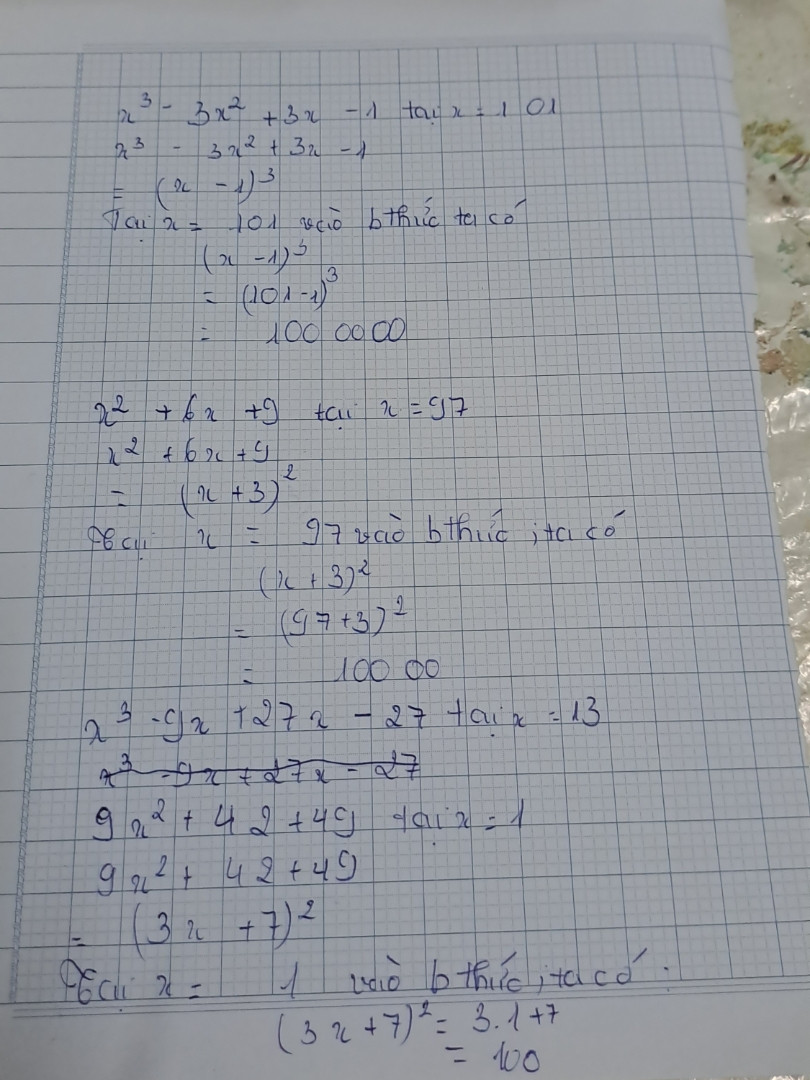 x³ - 3x² + 3x - 1 tại x = 101
x³ - 3x² + 3x - 1
= (x - 1)³
Tại x = 101 vào bthức ta có
(x - 1)³
= (101 - 1)³
= 100 00 00
x² + 6x + 9 tại x = 97
x² + 6x + 9
= (x + 3)²
Tại x = 97 vào bthức, ta có
(x + 3)²
= (97 + 3)²
= 100 00
x³ - 9x + 27x - 27 tại x = 13
x³ - 9x + 27x - 27
9x² + 42 + 49 tại x = 1
9x² + 42 + 49
= (3x + 7)²
Tại x = 1 vào bthức, ta có.
(3x + 7)² = 3.1 + 7
= 100